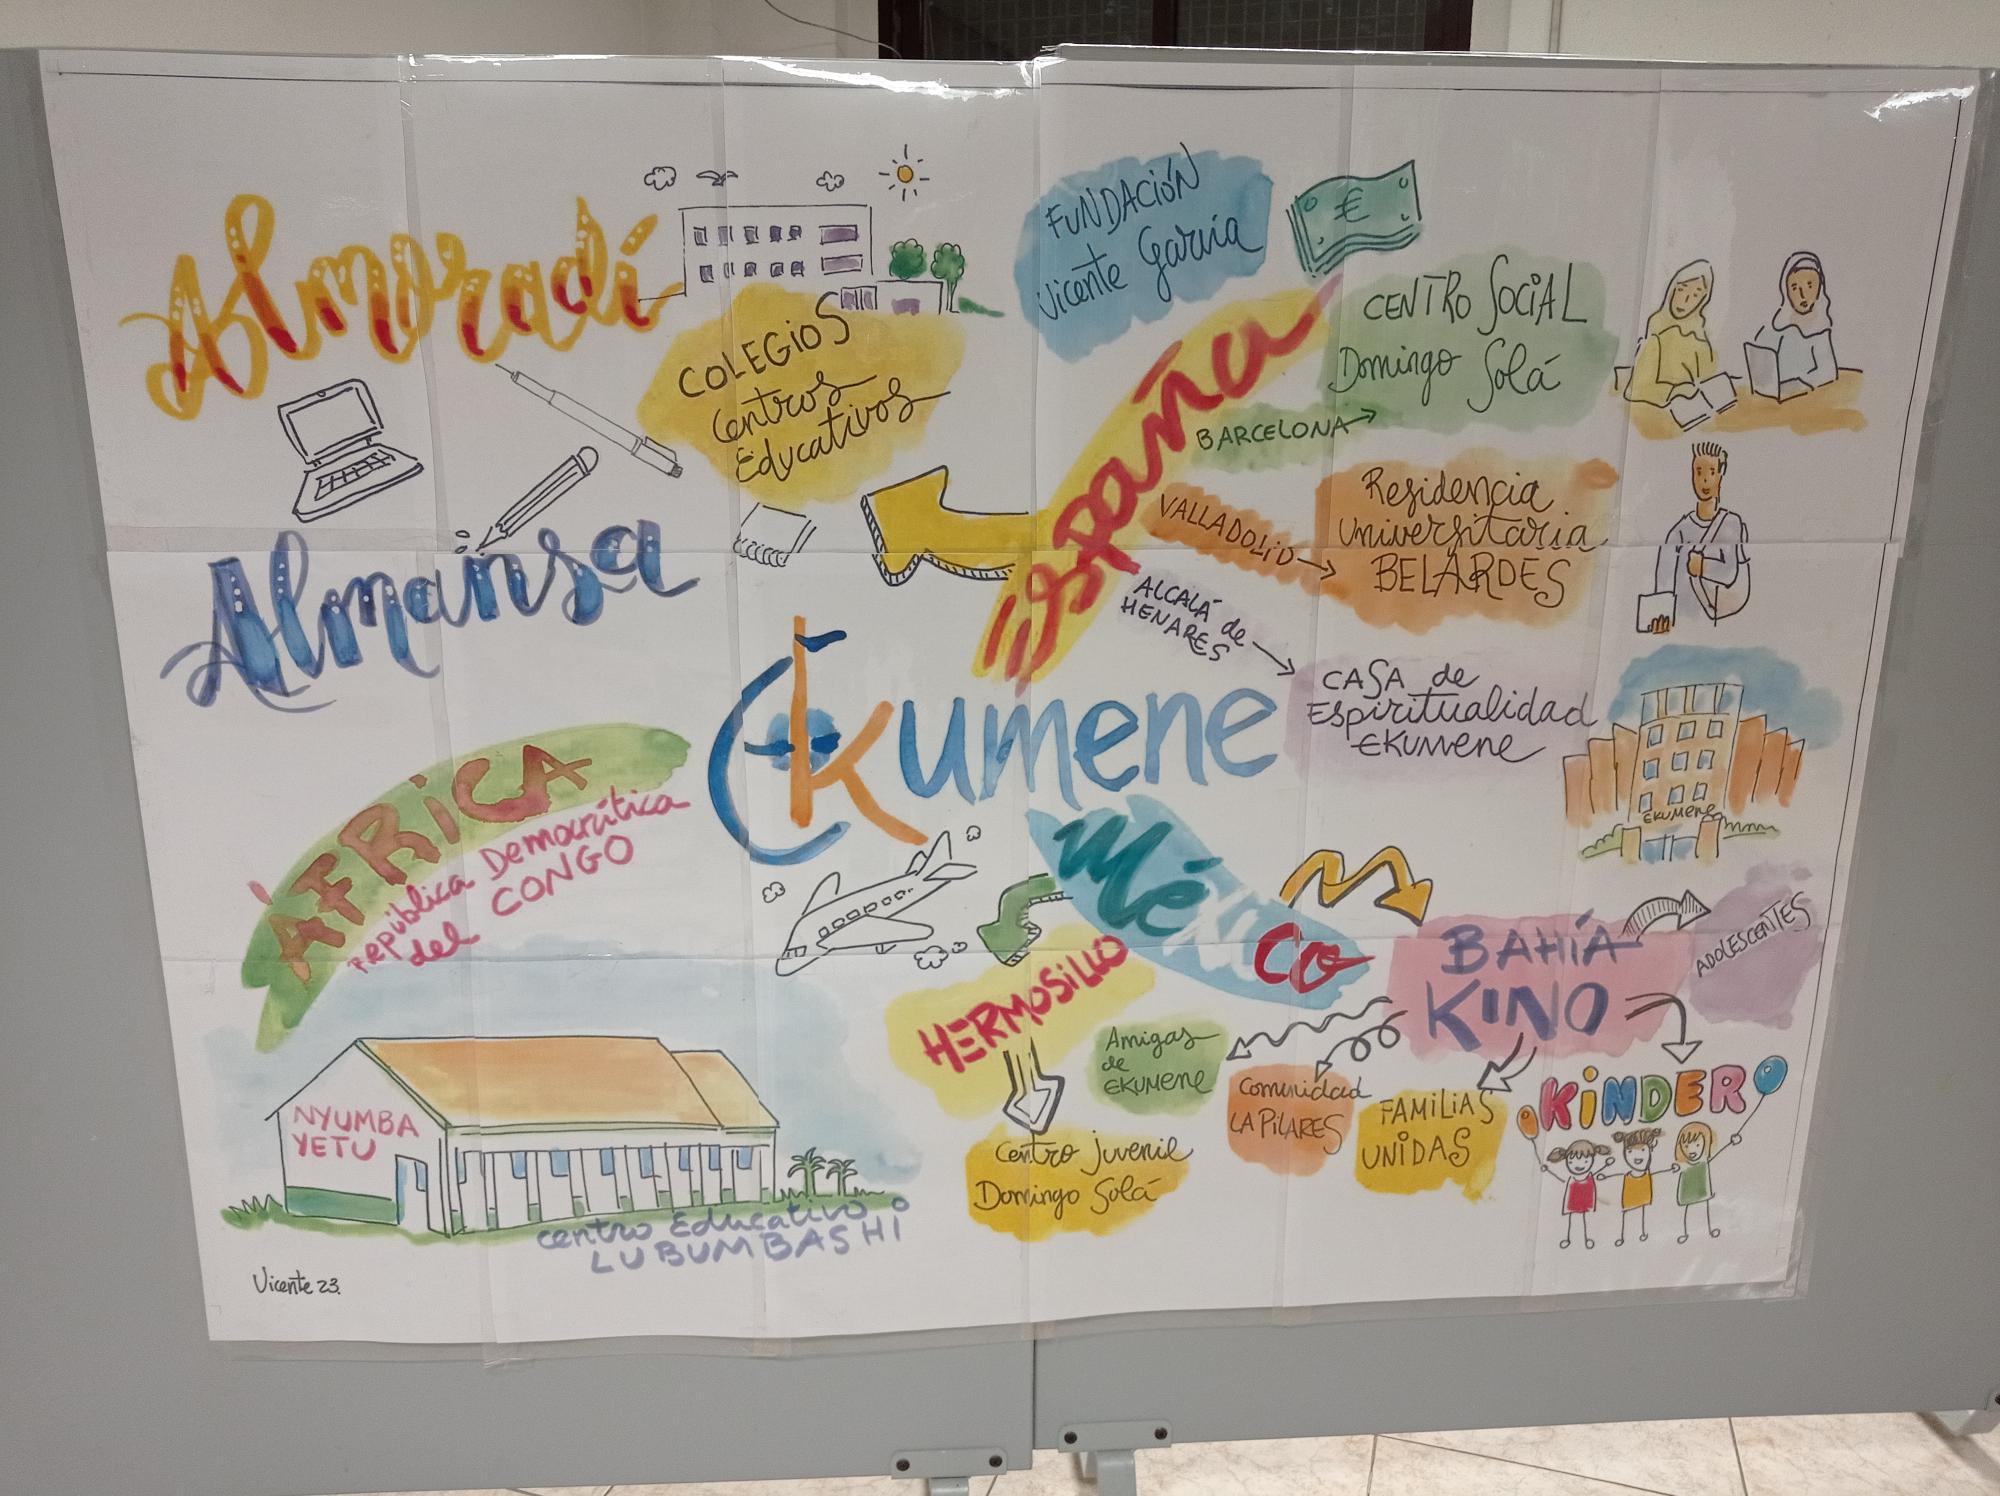 Almoradí
COLEGIOS
Centros
Educativos
Almansa
FUNDACIÓN
Vicente García
€
España
CENTRO SOCIAL
Domingo Solá
BARCELONA
VALLADOLID
Residencia
Universitaria
BELARDES
ALCALÁ de
HENARES
CASA de
ESPiritualidad
EKUMENE
EKUMENE
Ekumene
ÁFRICA
República Democrática
del CONGO
NYUMBA
YETU
centro Educativo
LUBUMBASHI
México
HERMOSILLO
Centro juvenil
Domingo Solá
BAHÍA
KINO
ADOLESCENTES
Amigas
de
EKUMENE
Comunidad
LA PILARES
FAMILIAS
UNIDAS
KINDER
Vicente 23.